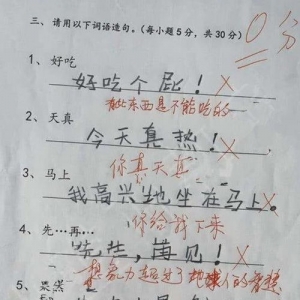 0分
三、请用以下词语造句。(每小题5分，共30分)
1、好吃
好吃个屁！
此东西是不能吃的
2、天真
今天真热！
你真天真
3、马上
我高兴地坐在马上。
你给我下来
4、先…再…
先生，再见！
想象力超过了地球人的智慧
5、